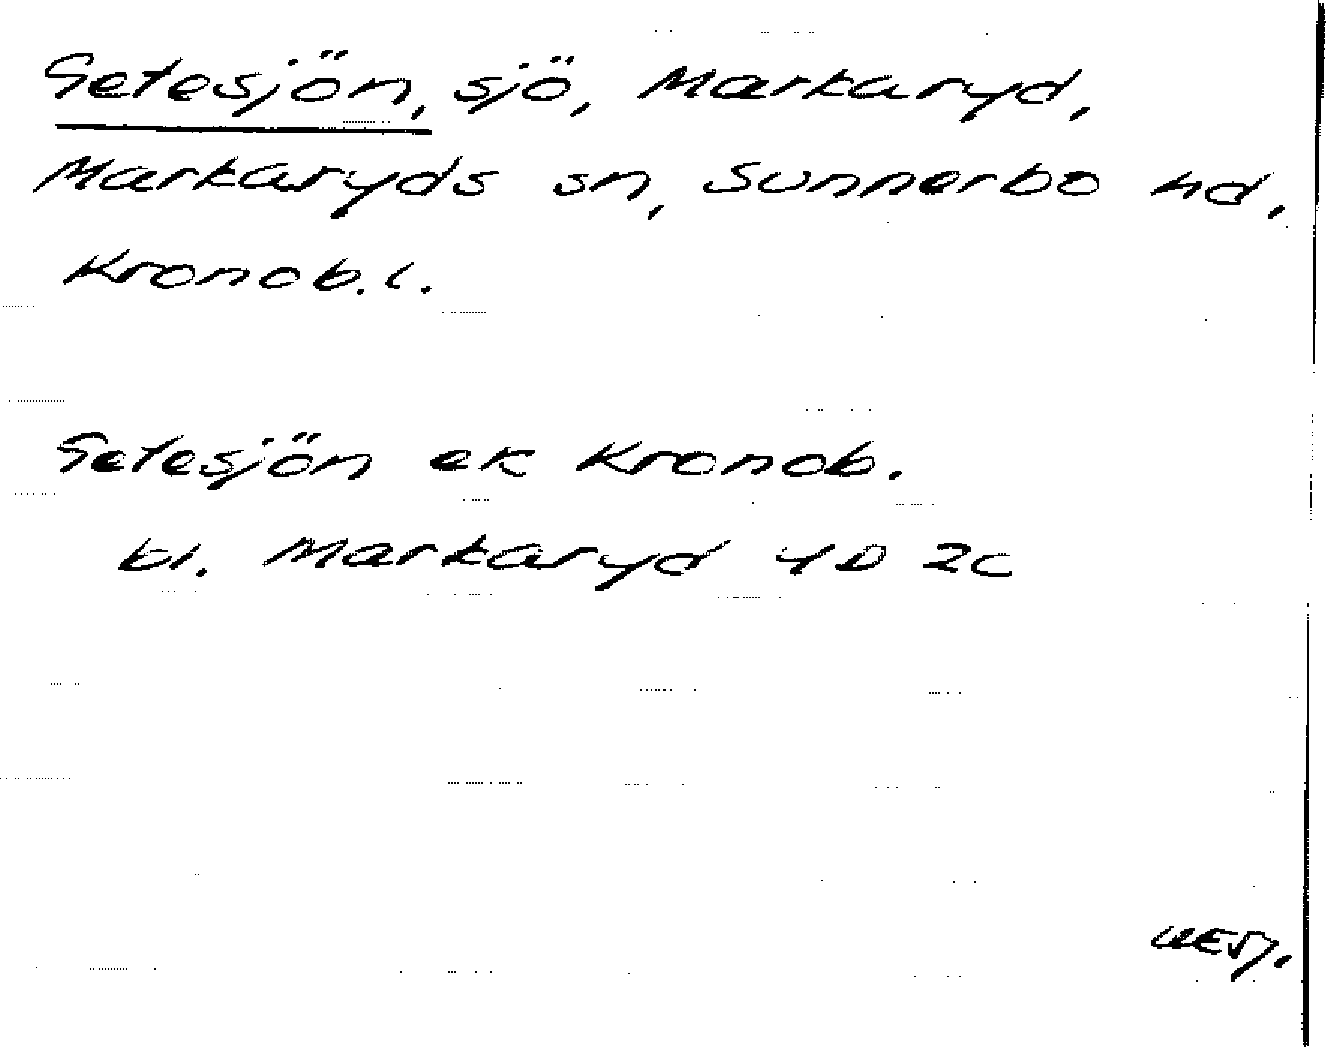 Getesjön, sjö, Markaryd,
Markaryds sn, Sunnerbo hd,
Kronob. l.
Getesjön ek Kronob.
bl. Markaryd 4D 2c